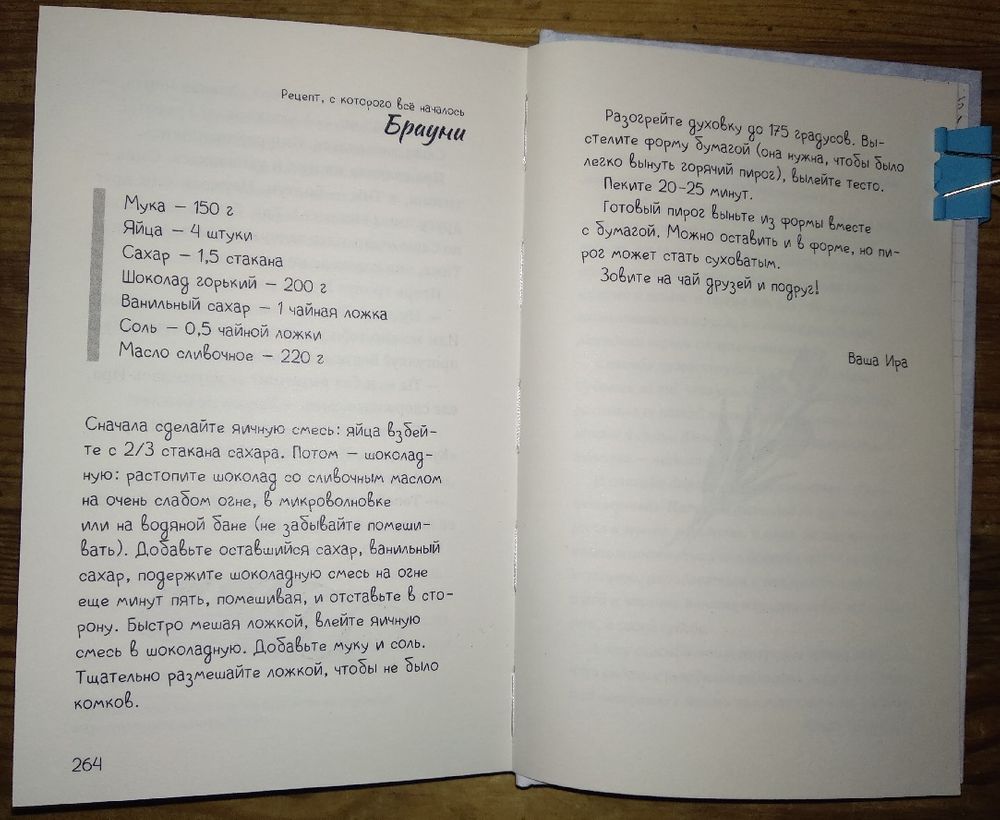 Рецепт, с которого всё началось
Брауни
Мука – 150 г
Яйца – 4 штуки
Сахар – 1,5 стакана
Шоколад горький – 200 г
Ванильный сахар – 1 чайная ложка
Соль – 0,5 чайной ложки
Масло сливочное – 220 г
Сначала сделайте яичную смесь: яйца взбей-
те с 2/3 стакана сахара. Потом – шоколад-
ную: растопите шоколад со сливочным маслом
на очень слабом огне, в микроволновке
или на водяной бане (не забывайте помеши-
вать). Добавьте оставшийся сахар, ванильный
сахар, подержите шоколадную смесь на огне
еще минут пять, помешивая, и отставьте в сто-
рону. Быстро мешая ложкой, влейте яичную
смесь в шоколадную. Добавьте муку и соль.
Тщательно размешайте ложкой, чтобы не было
комков.
264
Разогрейте духовку до 175 градусов. Вы-
стелите форму бумагой (она нужна, чтобы было
легко вынуть горячий пирог), вылейте тесто.
Пеките 20-25 минут.
Готовый пирог выньте из формы вместе
с бумагой. Можно оставить и в форме, но пи-
рог может стать суховатым.
Зовите на чай друзей и подруг!
Ваша Ира